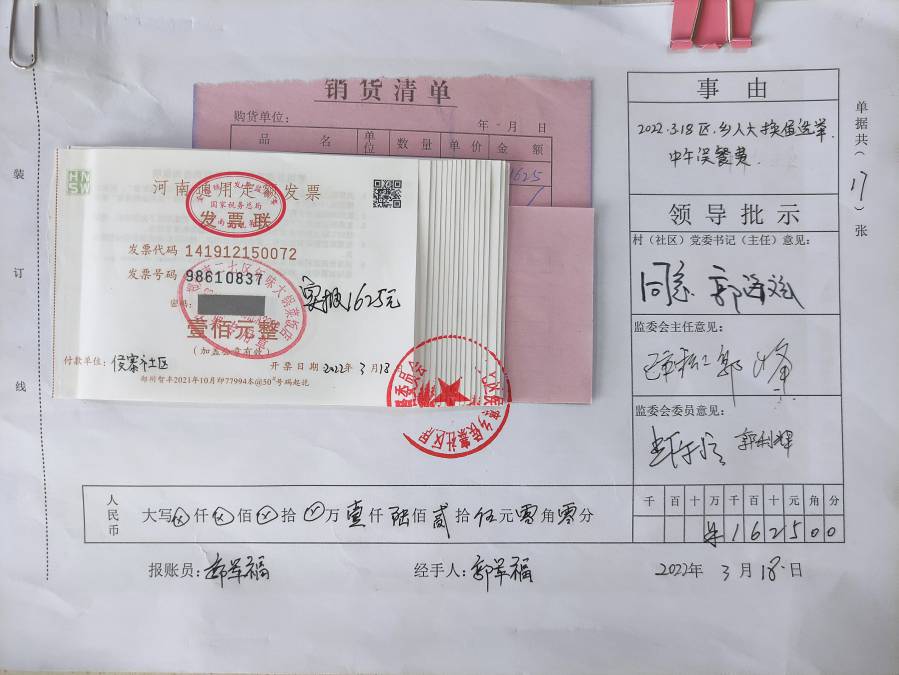 销货清单
购货单位:
年 月 日
品 名
单位
数 量
单 价
金 额
1625
HN
SW
河南通用定额发票
国家税务总局
发票联
发票代码 141912150072
发票号码 98610837
密码:
实报1625元
壹佰元整
(加盖公章有效)
付款单位: 侯寨社区
开票日期 2022年 3月18
事 由
2022.3.18区.乡人大换届选举.
中午误餐费.
领导批示
村(社区)党委书记(主任)意见:
同意
监委会主任意见:
监委会委员意见:
郭利辉
单据共(17)张
装
订
线
人民币
大写ⓧ仟ⓧ佰ⓧ拾ⓧ万壹仟陆佰贰拾伍元零角零分
千 百 十 万 千 百 十 元 角 分
¥ 1 6 2 5 0 0
报账员: 郭军福
经手人: 郭军福
2022年 3 月 18 日